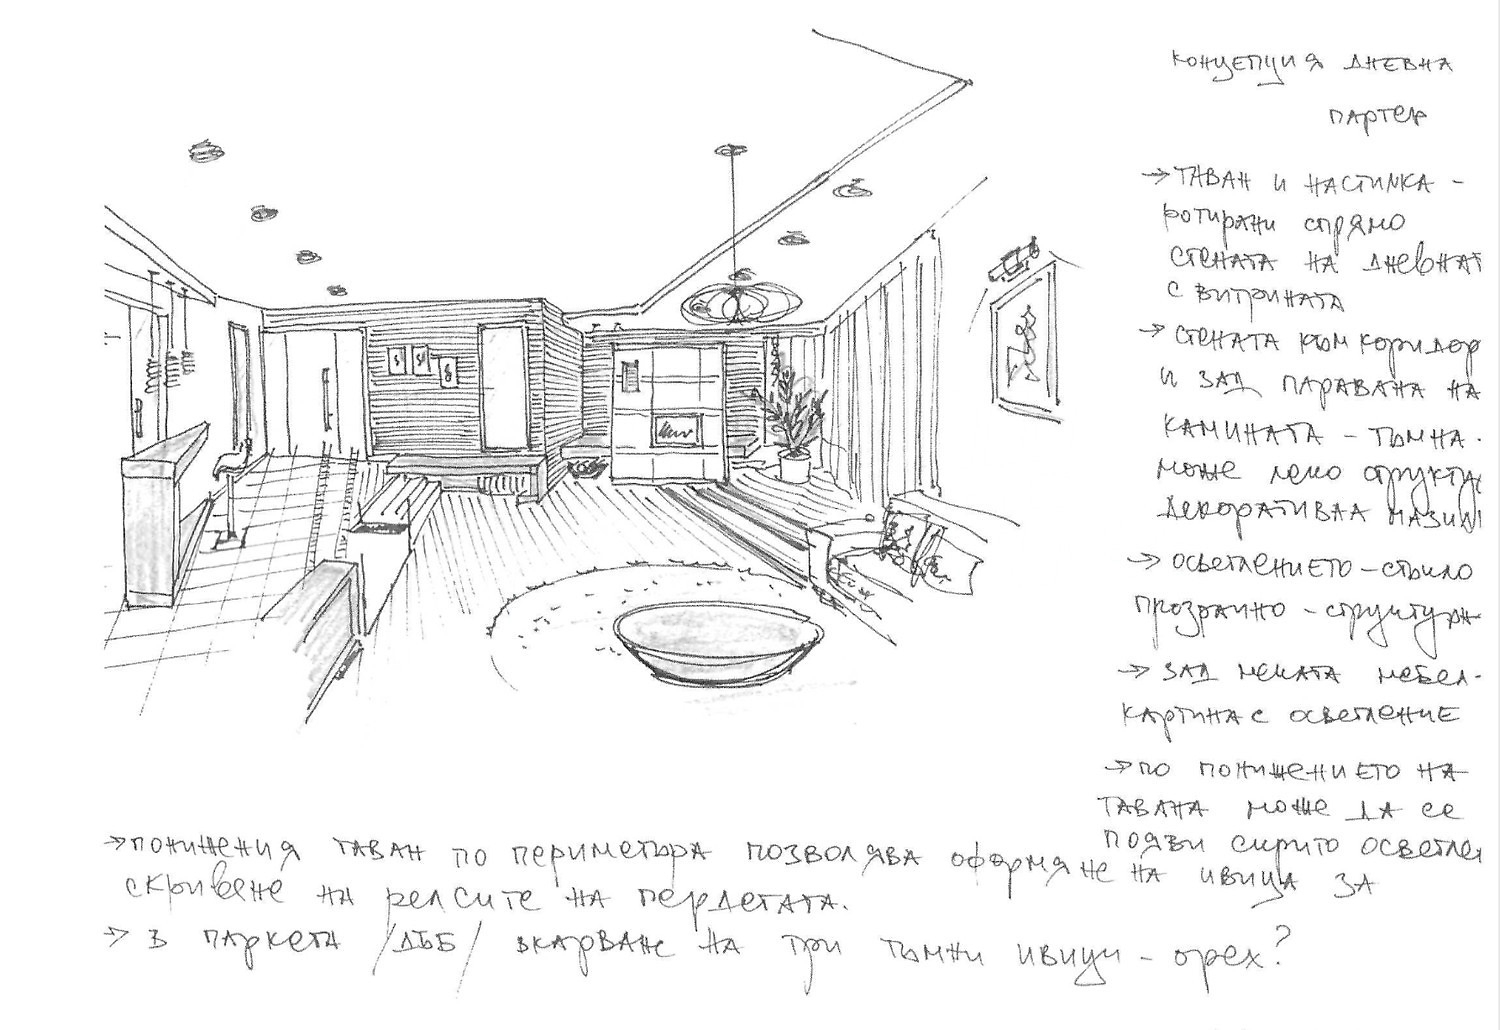 концепция дневна
партер
→ таван и настилка -
ротирани спрямо
стената на дневнат
с витрината
→ стената към коридор
и зад паравана на
камината - тъмна.
може леко структу
декоративаа мазил
→ осветлението - стъкло
прозрачно - структурн
→ зад меката мебел-
картина с осветление
→ по понижението на
тавана може да се
появи скрито осветле
→ понижения таван по периметъра позволява оформяне на ивица за
скриване на релсите на пердетата.
→ в паркета /дъб/ вкарване на три тъмни ивици - орех?